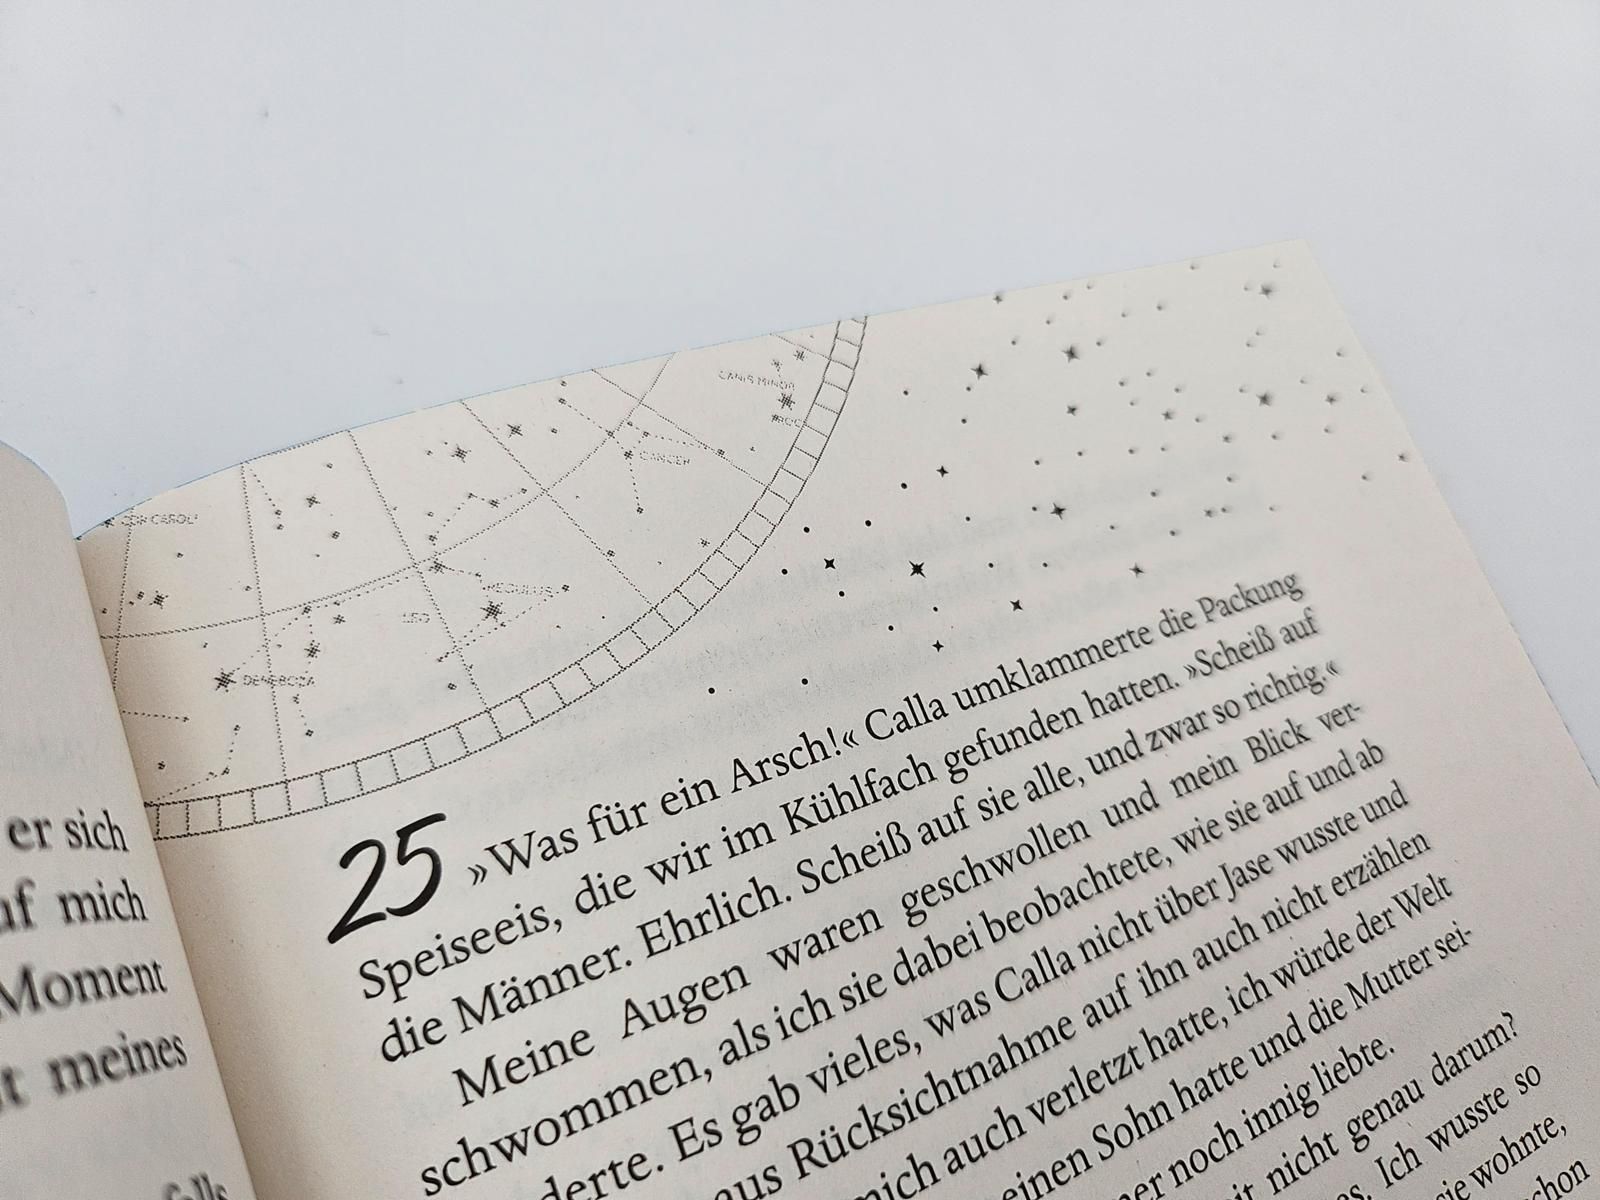 er sich
mich
Moment
meines
COR CAROLI
CANIS MINOR
CANCER
REGULUS
LEO
DENEBOLA
25
»Was für ein Arsch!« Calla umklammerte die Packung
Speiseeis, die wir im Kühlfach gefunden hatten. »Scheiß auf
die Männer. Ehrlich. Scheiß auf sie alle, und zwar so richtig.«
Meine Augen waren geschwollen und mein Blick ver-
schwommen, als ich sie dabei beobachtete, wie sie auf und ab
Es gab vieles, was Calla nicht über Jase wusste und
aus Rücksichtnahme auf ihn auch nicht erzählen
mich auch verletzt hatte, ich würde der Welt
einen Sohn hatte und die Mutter sei-
noch innig liebte.
nicht genau darum?
Ich wusste so
sie wohnte,